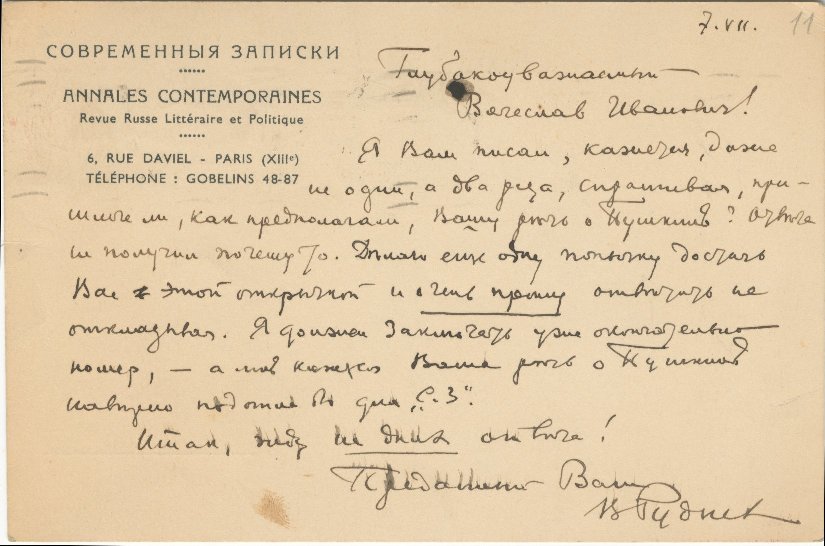 7.VII.
11
СОВРЕМЕННЫЯ ЗАПИСКИ
ANNALES CONTEMPORAINES
Revue Russe Littéraire et Politique
6, RUE DAVIEL - PARIS (XIIIe)
TÉLÉPHONE : GOBELINS 48-87
Глубокоуважаемый
Вячеслав Иванович!
Я Вам писал, кажется, даже
не один, а два раза, спрашивая, при-
шлете ли, как предполагали, Вашу рѣчь о Пушкинѣ? Отвѣта
не получил почему то. Дѣлаю еще одну попытку достать
Вас этой открыткой и очень прошу отвѣтить не
откладывая. Я должен заключать уже окончательно
номер, — а мнѣ кажется Ваша рѣчь о Пушкинѣ
навѣрно подошла бы для „С.З".
Итак, жду на днях отвѣта!
Преданный Вам
В Руднев